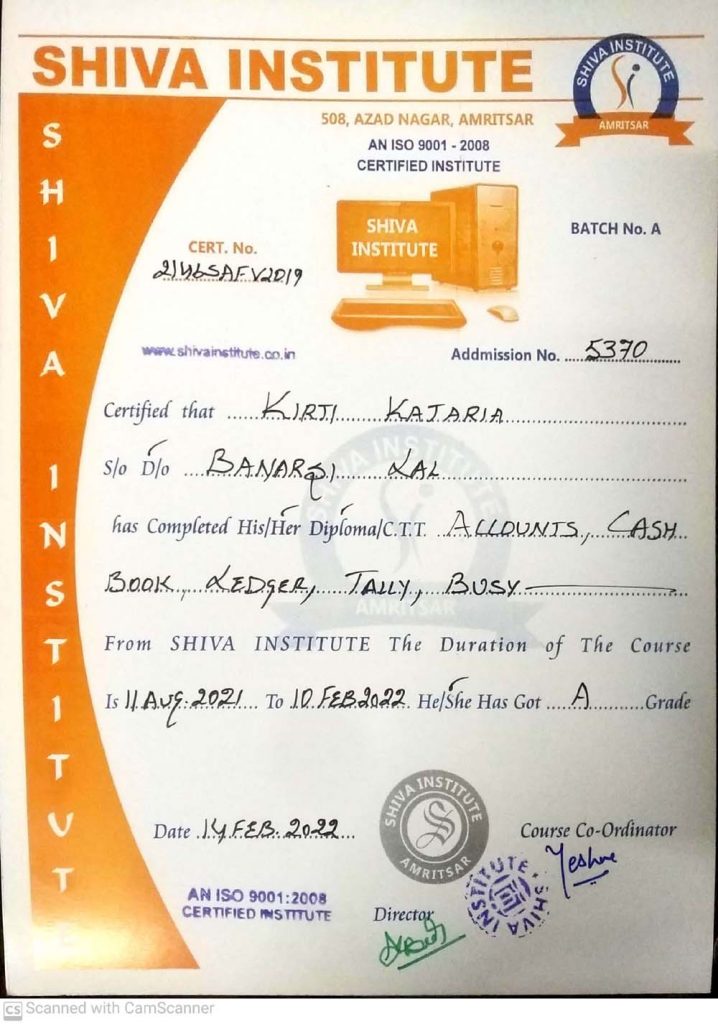 SHIVA INSTITUTE
SHIVA INSTITUTE
AMRITSAR
508, AZAD NAGAR, AMRITSAR
AN ISO 9001 - 2008
CERTIFIED INSTITUTE
SHIVA INSTITUT
SHIVA
INSTITUTE
BATCH No. A
CERT. No.
www.shivainstitute.co.in
Addmission No. 5370
Certified that KIRTI KATARIA
S/o D/o BANARSI LAL
has Completed His/Her Diploma/C.T.T. ACCOUNTS, CASH
BOOK, LEDGER, TALLY, BUSY
SHIVA INSTITUTE
AMRITSAR
From SHIVA INSTITUTE The Duration of The Course
Is 11 AUG. 2021 To 10 FEB 2022 He/She Has Got A Grade
SHIVA INSTITUTE
S
AMRITSAR
Date 14 FEB. 2022
Course Co-Ordinator
AN ISO 9001:2008
CERTIFIED INSTITUTE
Director
SHIVA INSTITUTE
CS Scanned with CamScanner